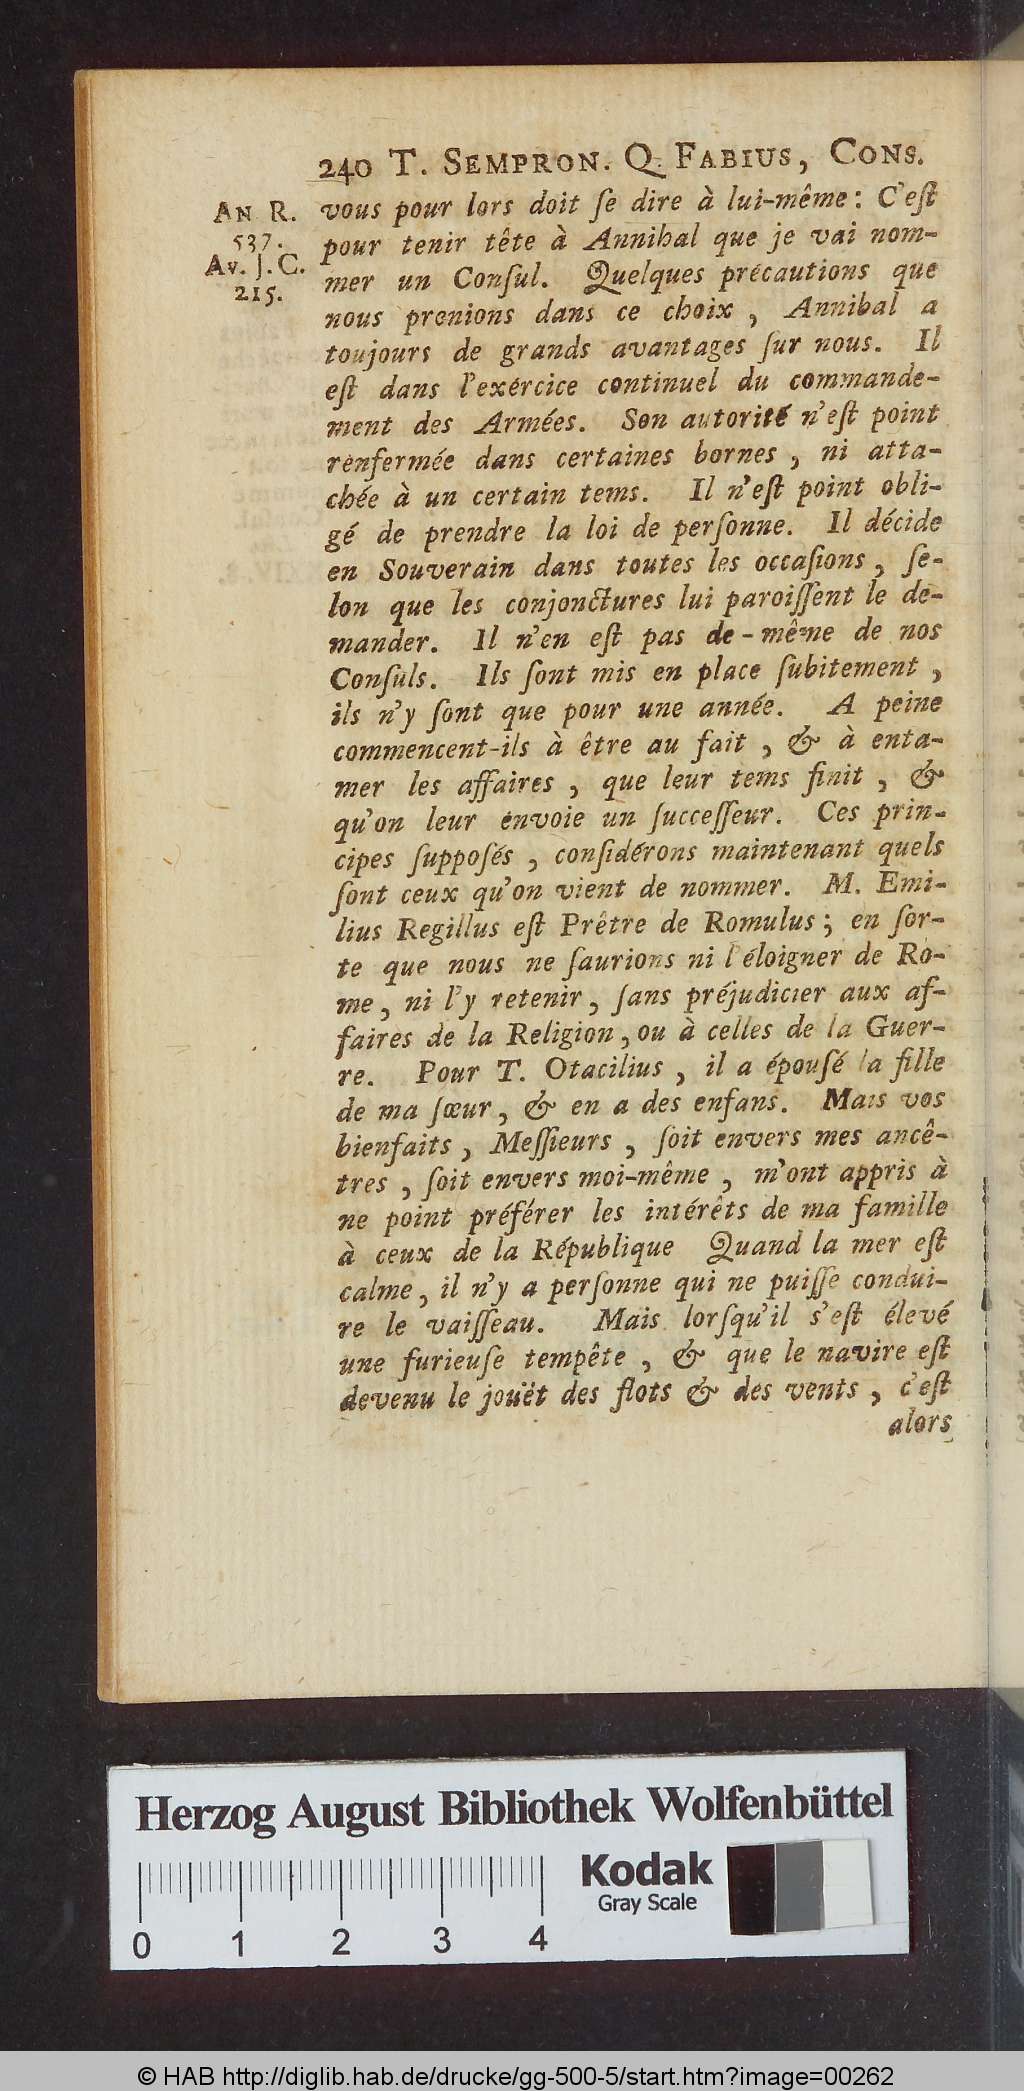 240 T. SEMPRON. Q. FABIUS, CONS.
AN R.
537.
Av. J. C.
215.
vous pour lors doit ſe dire à lui-même: C'eſt
pour tenir tête à Annibal que je vai nom-
mer un Conſul. Quelques précautions que
nous prenions dans ce choix, Annibal a
toujours de grands avantages ſur nous. Il
eſt dans l'exércice continuel du commande-
ment des Armées. Son autorité n'eſt point
renfermée dans certaines bornes, ni atta-
chée à un certain tems. Il n'eſt point obli-
gé de prendre la loi de perſonne. Il décide
en Souverain dans toutes les occaſions, ſe-
lon que les conjonctures lui paroiſſent le de-
mander. Il n'en eſt pas de-même de nos
Conſuls. Ils ſont mis en place ſubitement,
ils n'y ſont que pour une année. A peine
commencent-ils à être au fait, & à enta-
mer les affaires, que leur tems finit, &
qu'on leur envoie un ſucceſſeur. Ces prin-
cipes ſuppoſés, conſidérons maintenant quels
ſont ceux qu'on vient de nommer. M. Emi-
lius Regillus eſt Prêtre de Romulus; en ſor-
te que nous ne ſaurions ni l'éloigner de Ro-
me, ni l'y retenir, ſans préjudicier aux af-
faires de la Religion, ou à celles de la Guer-
re. Pour T. Otacilius, il a épouſé la fille
de ma ſœur, & en a des enfans. Mais vos
bienfaits, Meſſieurs, ſoit envers mes ancê-
tres, ſoit envers moi-même, m'ont appris à
ne point préférer les intérêts de ma famille
à ceux de la République Quand la mer eſt
calme, il n'y a perſonne qui ne puiſſe condui-
re le vaiſſeau. Mais lorſqu'il s'eſt élevé
une furieuſe tempête, & que le navire eſt
devenu le jouët des flots & des vents, c'eſt
alors
Herzog August Bibliothek Wolfenbüttel
Kodak
Gray Scale
0 1 2 3 4
© HAB http://diglib.hab.de/drucke/gg-500-5/start.htm?image=00262